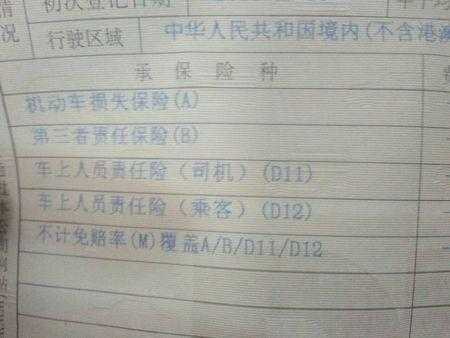 初次登记日期
行驶区域 中华人民共和国境内(不含港澳
承保险种
机动车损失保险(A)
第三者责任保险(B)
车上人员责任险(司机)(D11)
车上人员责任险(乘客)(D12)
不计免赔率(M)覆盖A/B/D11/D12
情
况